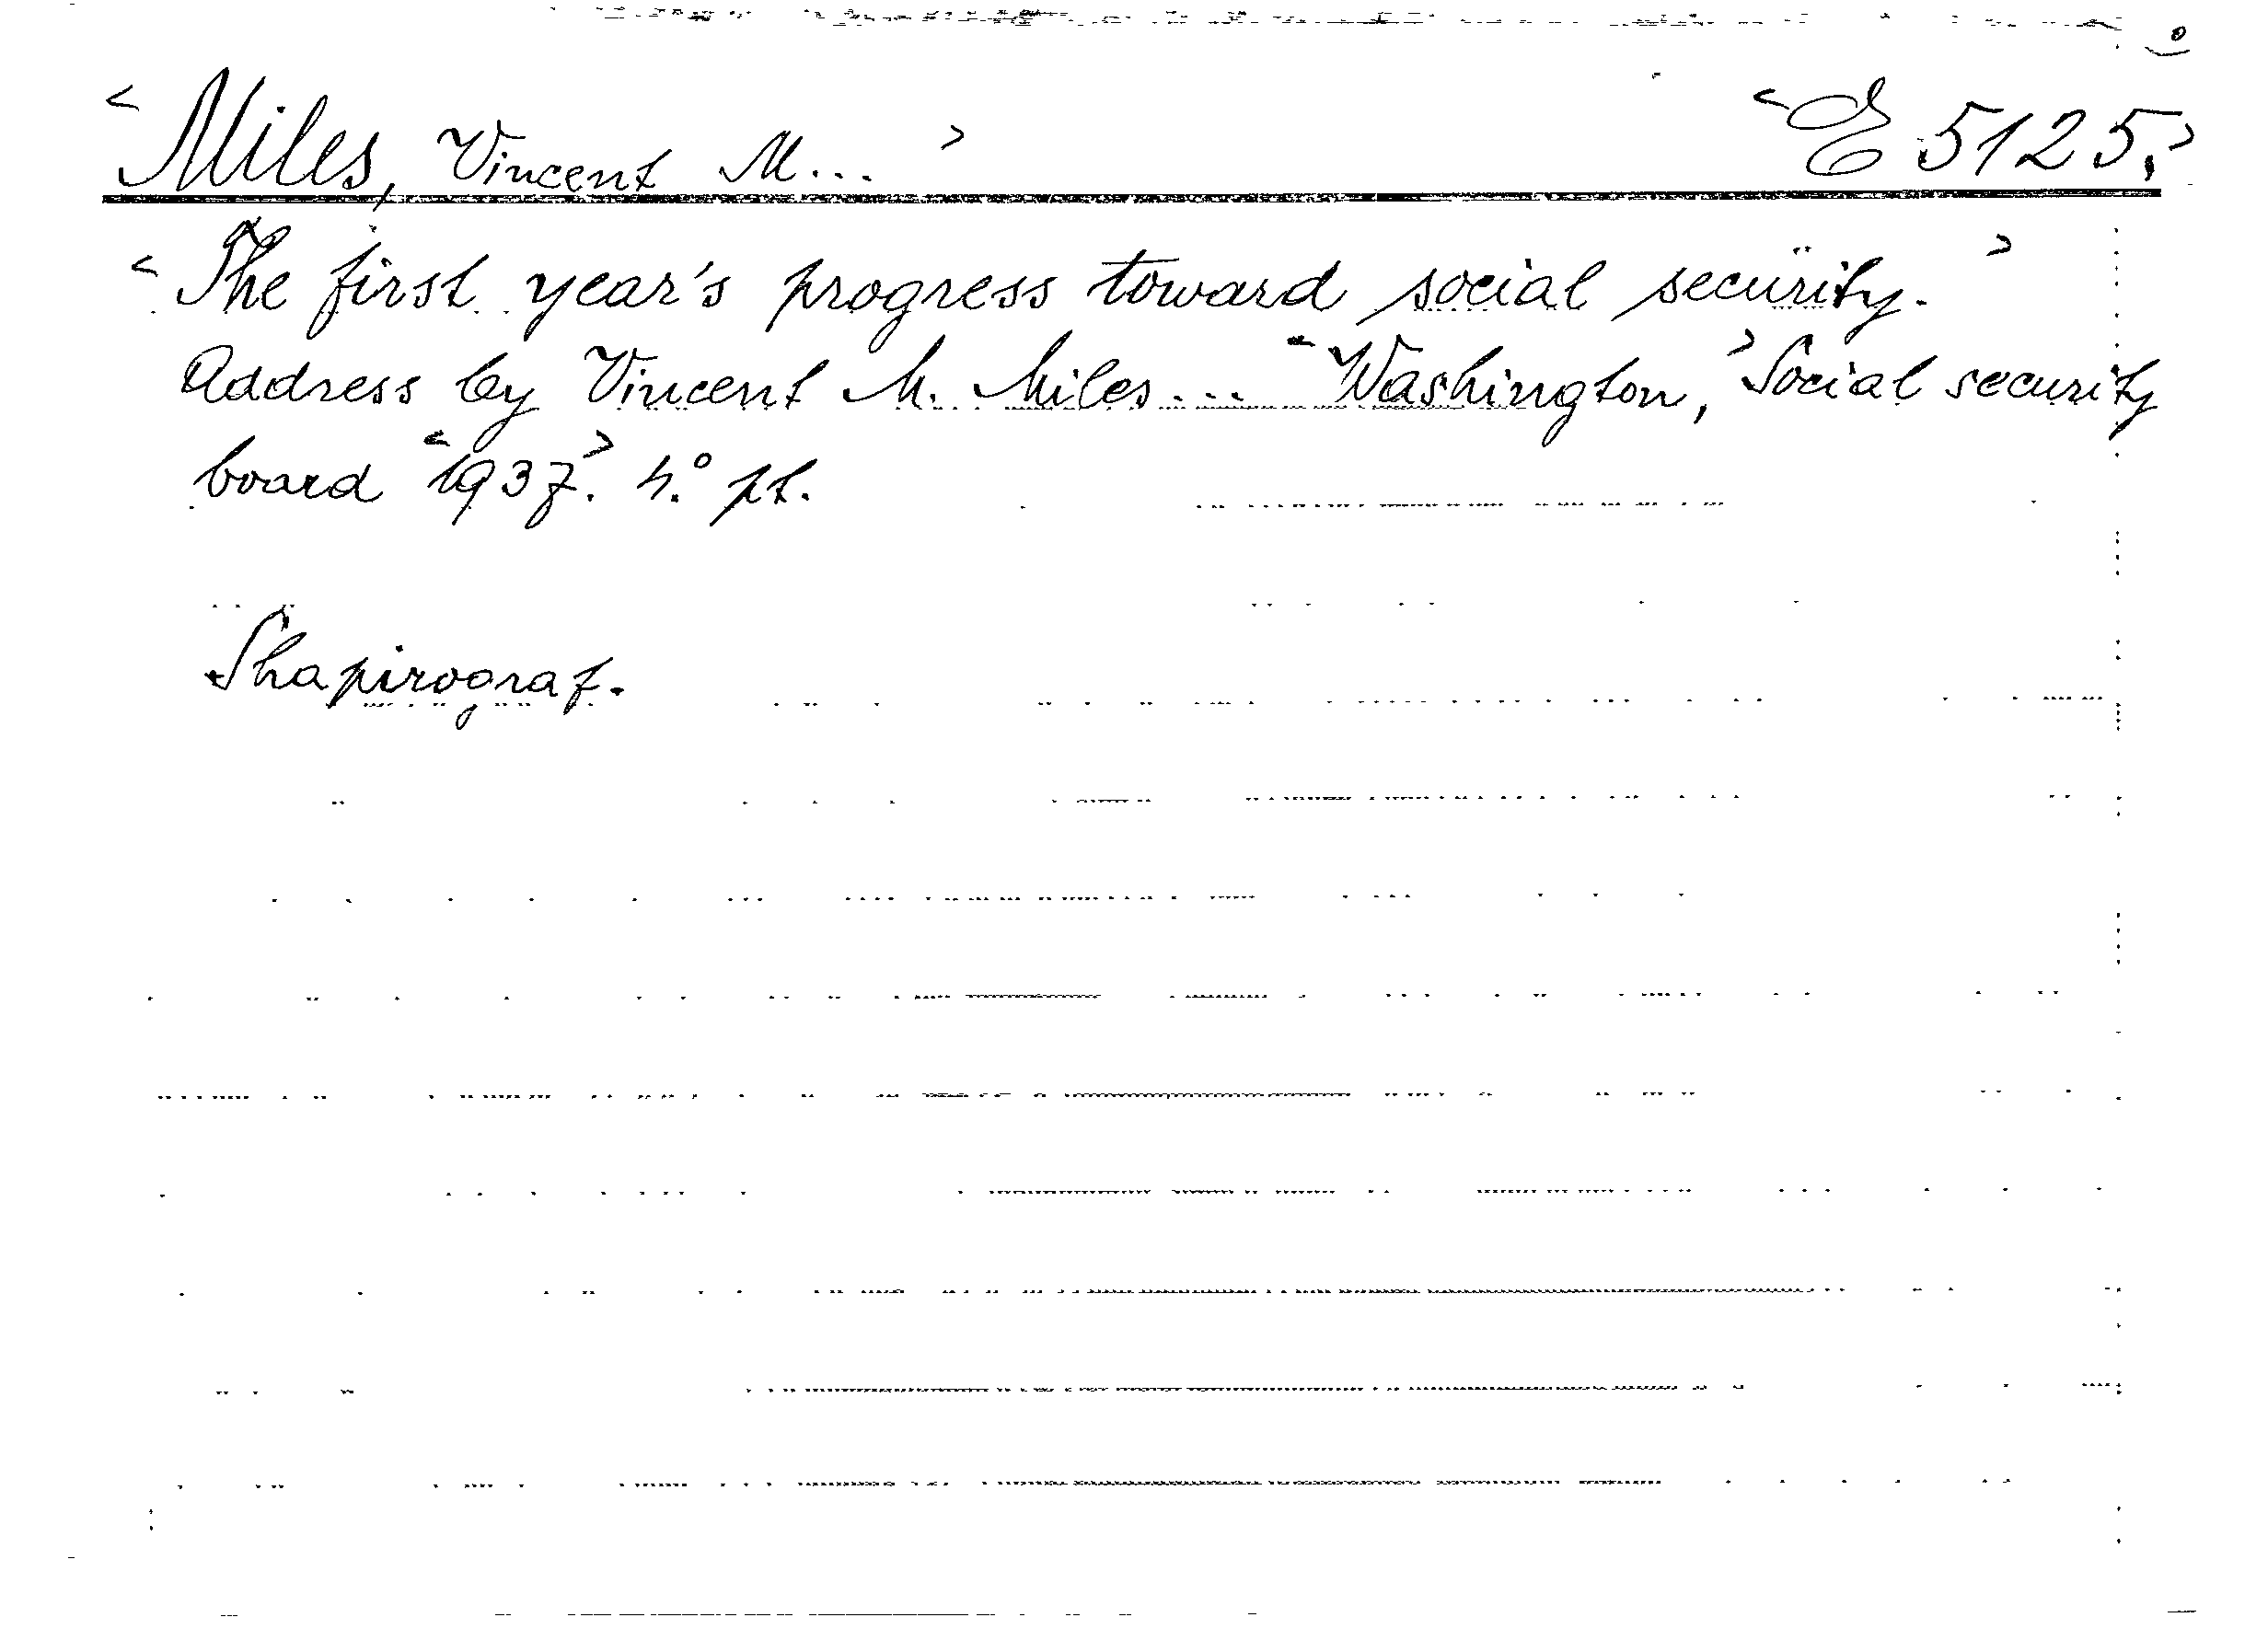 <Miles, Vincent M...> <E 5125.>
<The first year's progress toward social security.>
Address by Vincent M. Miles... <Washington,> Social security
board <1937>. 4.° pt.
Shapirograf.